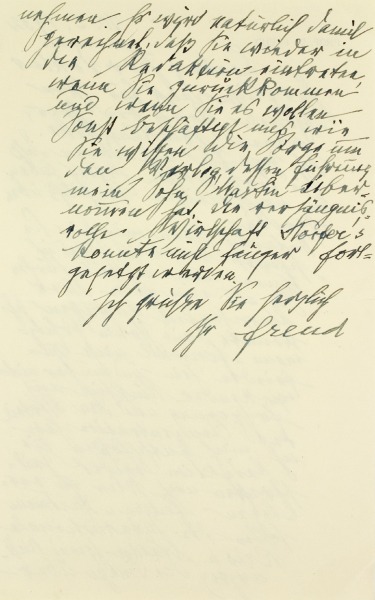 nehmen. Es wird natürlich damit
gerechnet, daß Sie wieder in
die Redaktion eintreten,
wenn Sie zurückkommen
und wenn Sie es wollen
Sonst beschäftigt uns wie
Sie wissen die Sorge um
den Verlag dessen Führung
mein Sohn Martin über
nommen hat. Die verhängnis-
volle Wirtschaft Storfer's
konnte nicht länger fort=
gesetzt werden.
Ich grüße Sie herzlich
Ihr Freud